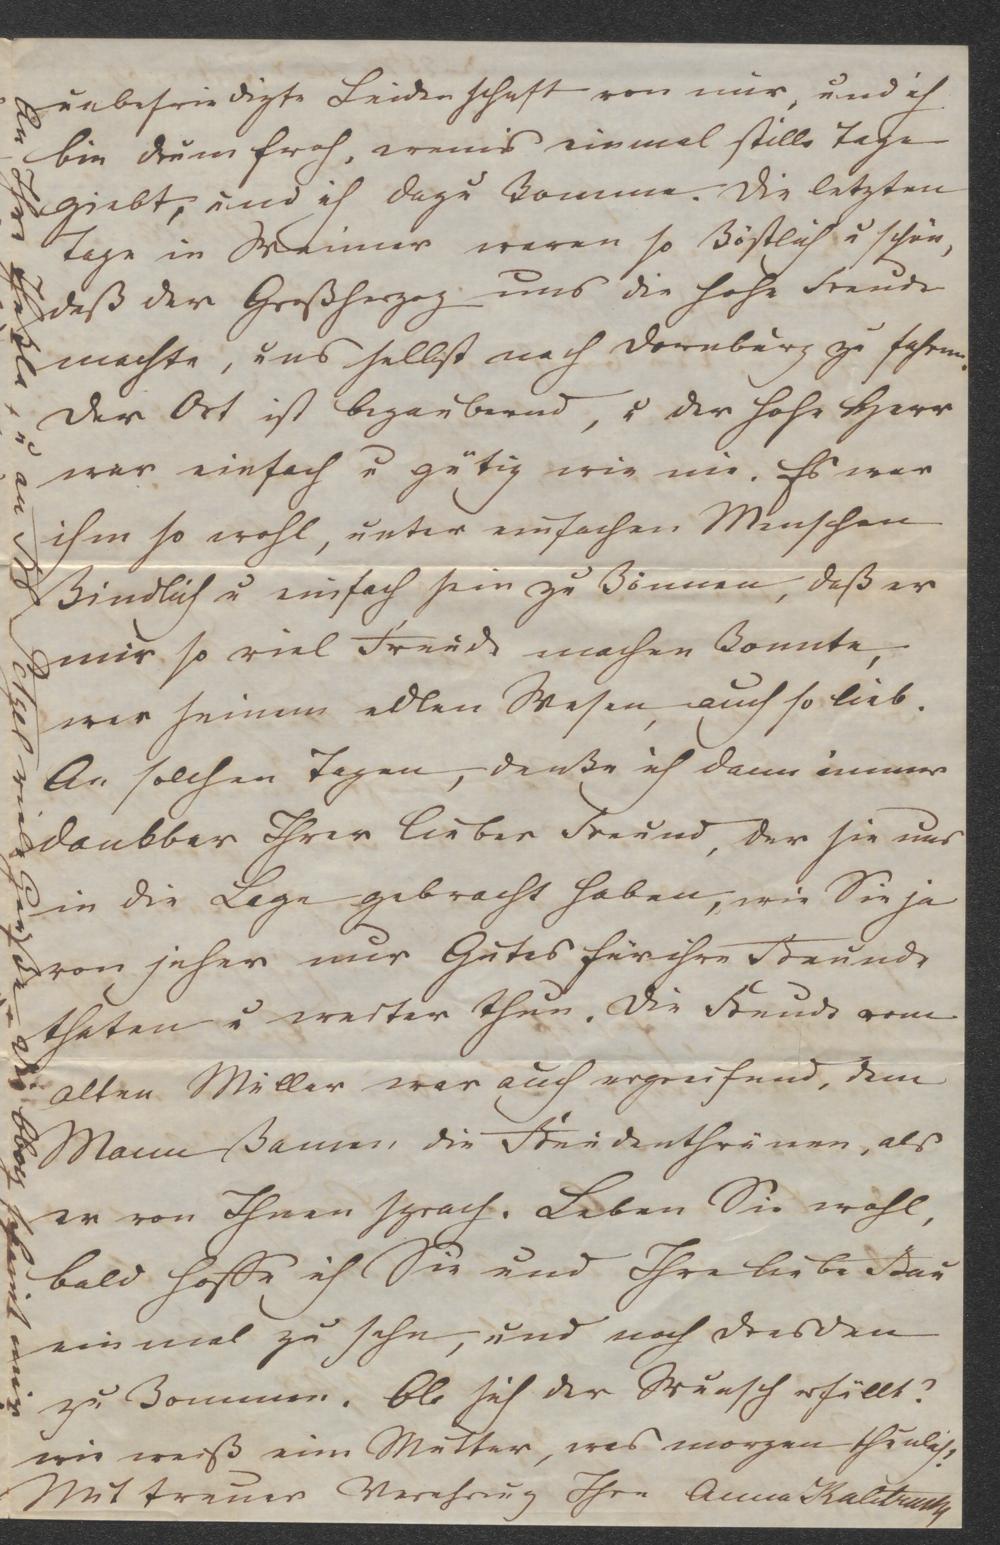 unbefriedigte Leidenschaft von mir, und ich
bin drum froh, wenns einmal stille Tage
giebt, und ich dazu komme. Die letzten
Tage in Weimar waren so köstlich u schön,
daß der Großherzog uns die hohe Freude
machte, uns selbst nach Dornburg zu fahren.
Der Ort ist bezaubernd, u der hohe Herr
war einfach u gütig wie nie. Es war
ihm so wohl, unter einfachen Menschen
kindlich u einfach sein zu können, daß er
mir so viel Freude machen konnte,
war seinem edlen Wesen, auch so lieb.
An solchen Tagen, denke ich dann immer
dankbar Ihrer lieber Freund, der sie uns
in die Lage gebracht haben, wie Sie ja
von jeher nur Gutes für ihre Freunde
thaten u weiter thun. Die Freude vom
alten Müller war auch ergreifend, dem
Mann kamen die Freudenthränen, als
er von Ihnen sprach. Leben Sie wohl,
bald hoffe ich Sie und Ihre liebe Frau
einmal zu sehn, und nach Dresden
zu kommen. Ob sich der Wunsch erfüllt?
wie weiß eine Mutter, was morgen thunlich?
Mit treuer Verehrung Ihre Anna
An Ihre u an viele Grüße